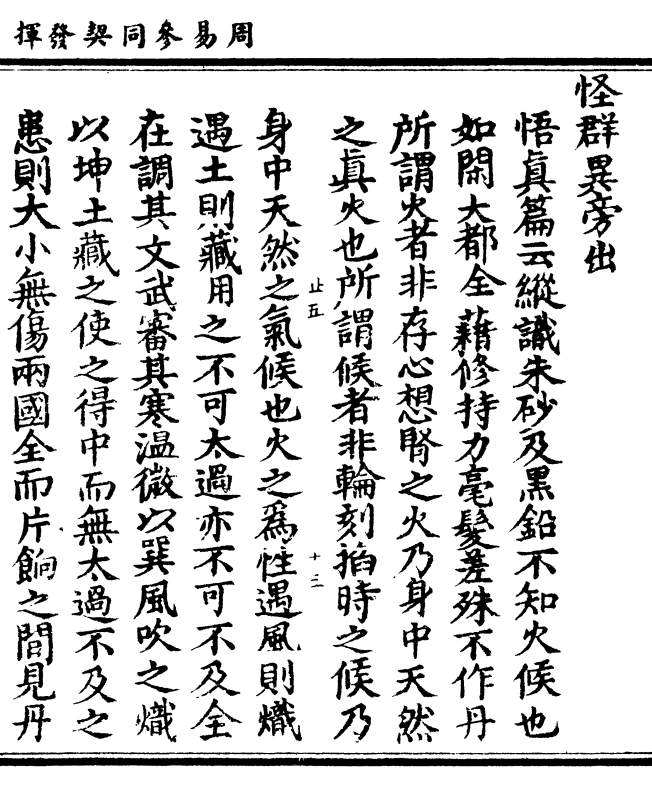 周易參同契發揮
怪群異旁出
悟眞篇云縱識朱砂及黑鉛不知火候也
如閑大都全藉修持力毫髮差殊不作丹
所謂火者非存心想腎之火乃身中天然
之眞火也所謂候者非輪刻掐時之候乃
止五
十三
身中天然之氣候也火之爲性遇風則熾
遇土則藏用之不可太過亦不可不及全
在調其文武審其寒温微以巽風吹之熾
以坤土藏之使之得中而無太過不及之
患則大小無傷兩國全而片餉之間見丹